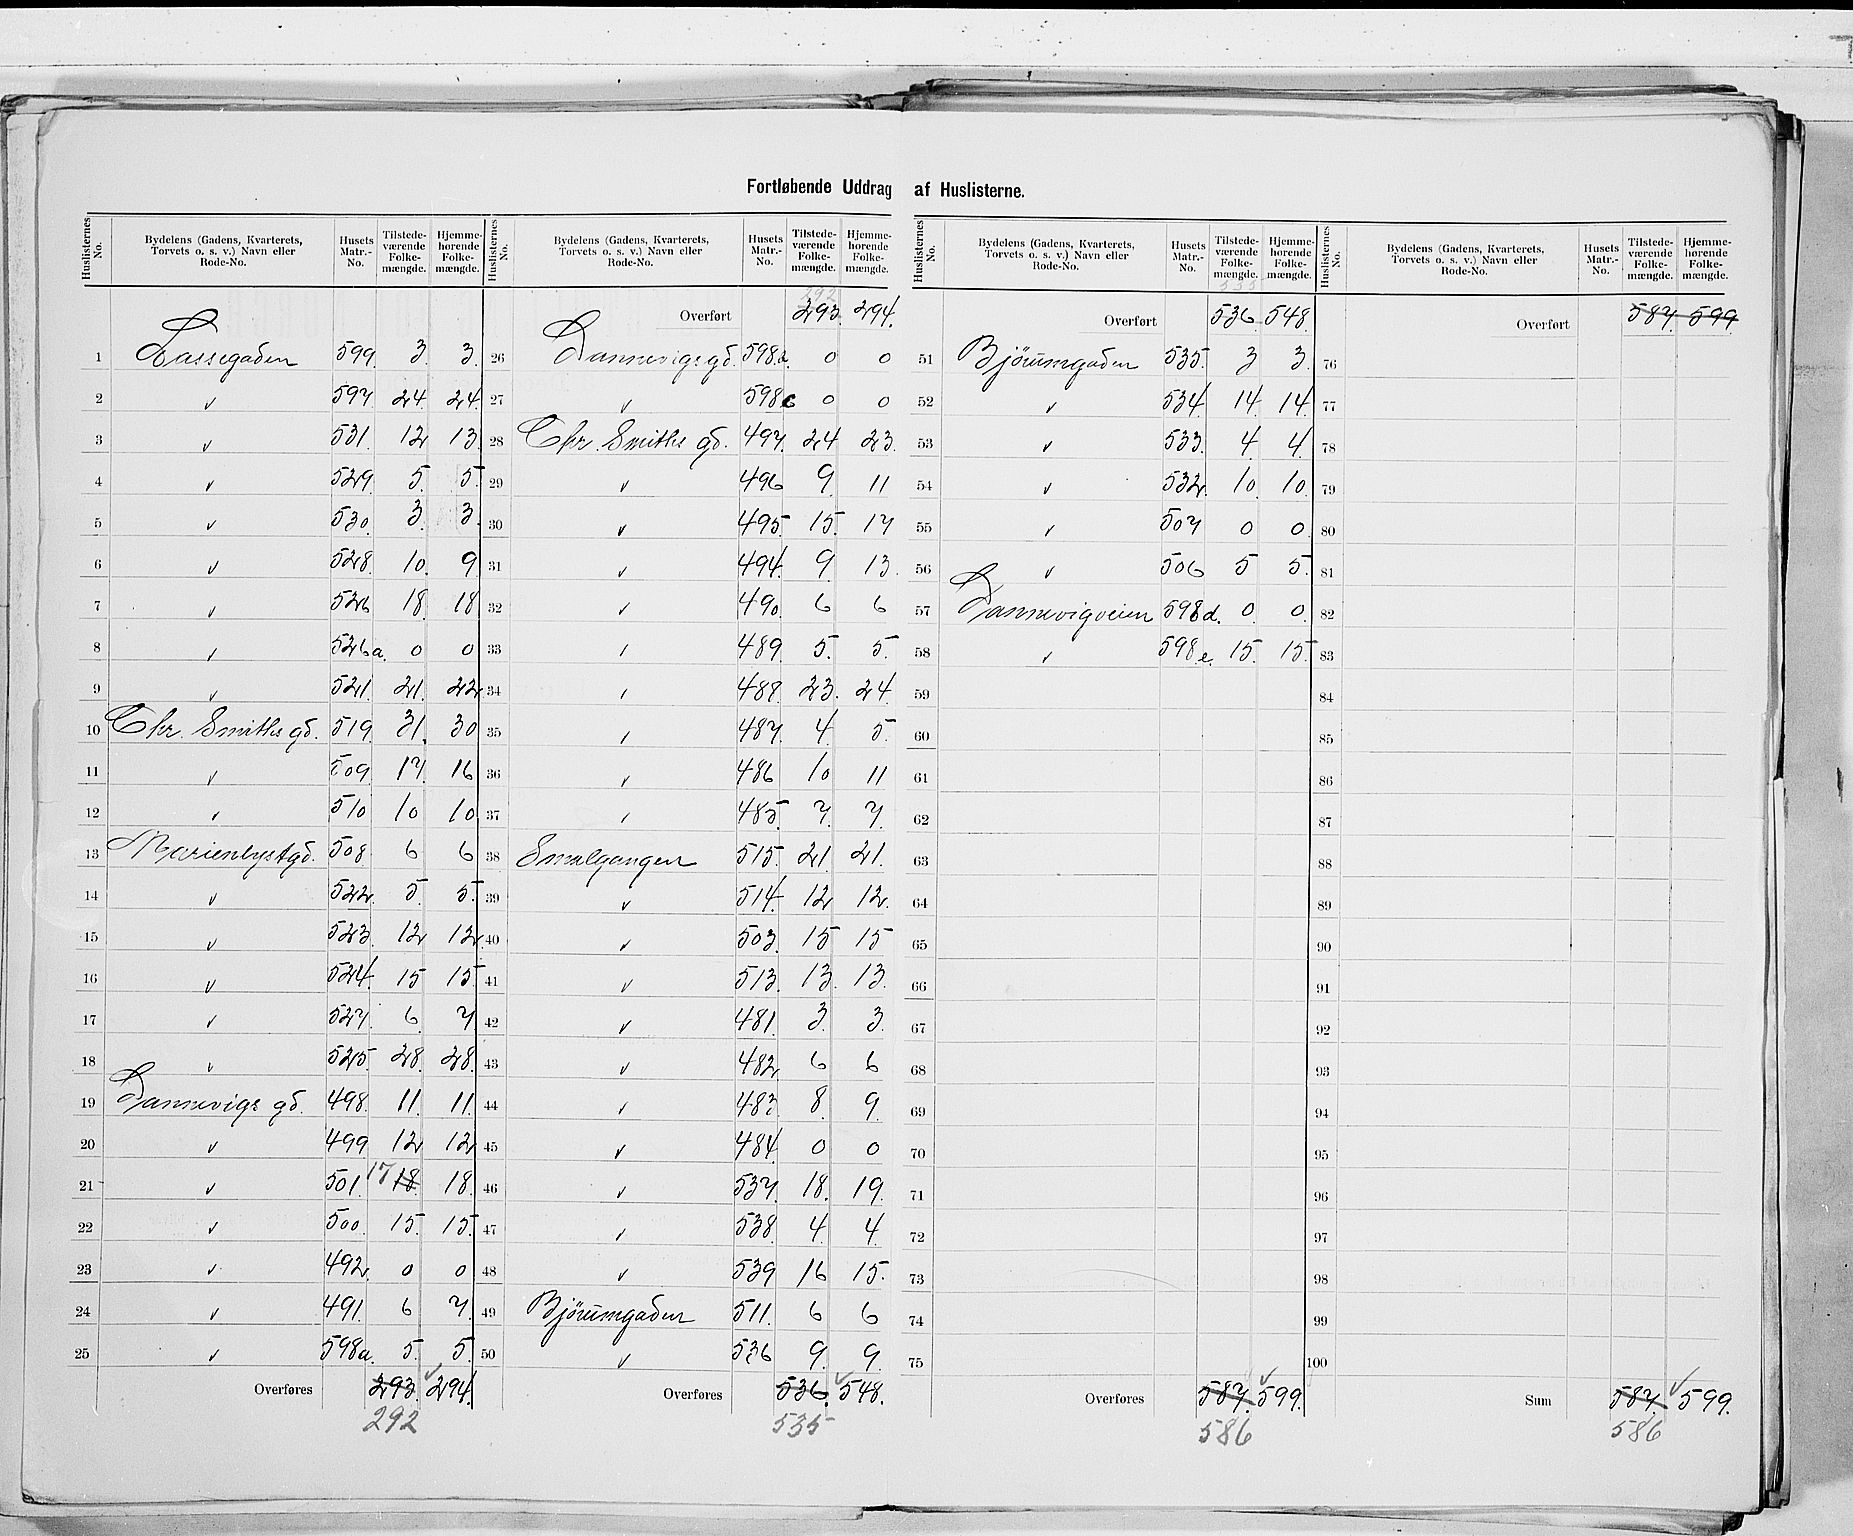 Fortløbende Uddrag af Huslisterne.
Huslisternes No. | Bydelens (Gadens, Kvarterets, Torvets o. s. v.) Navn eller Rode-No. | Husets Matr.-No. | Tilstede-værende Folke-mængde. | Hjemme-hørende Folke-mængde.
1 Lassegaden 599. 3. 3.
2 " 597. 24. 24.
3 " 531. 12 13.
4 " 529. 5. 5.
5 " 530. 3. 3.
6 " 528. 10. 9.
7 " 526 18. 18
8 " 526a. 0 0
9 " 521. 21. 22
10 Chr. Smiths gd. 519. 31. 30
11 " 509. 17. 16
12 " 510 10 10
13 Marienlystgd. 508. 6 6
14 " 522. 5. 5.
15 " 523. 12 12.
16 " 524. 15 15.
17 " 527. 6. 7
18 " 525. 28. 28.
19 Dannevigs gd. 498. 11. 11.
20 " 499 12 12
21 " 501. 17 18. 18.
22 " 500. 15. 15.
23 " 492. 0 0
24 " 491. 6 7.
25 " 598a. 5. 5.
Overføres 293. 294.
292
Huslisternes No. | Bydelens (Gadens, Kvarterets, Torvets o. s. v.) Navn eller Rode-No. | Husets Matr.-No. | Tilstede-værende Folke-mængde. | Hjemme-hørende Folke-mængde.
292
Overført 293. 294.
26 Dannevigs gd. 598b. 0 0
27 " 598c 0 0
28 Chr. Smiths gd. 497. 24 23.
29 " 496 9. 11
30 " 495. 15. 17
31 " 494. 9. 13.
32 " 490. 6 6
33 " 489. 5. 5.
34 " 488. 23. 24.
35 " 487. 4. 5.
36 " 486 10 11
37 " 485. 7. 7.
38 Smalgangen 515. 21 21.
39 " 514. 12 12.
40 " 503. 15 15
41 " 513. 13. 13.
42 " 481. 3. 3.
43 " 482. 6 6
44 " 483 8. 9.
45 " 484. 0 0
46 " 537. 18. 19.
47 " 538. 4. 4.
48 " 539 16 15.
49 Bjørumgaden 511. 6 6
50 " 536 9. 9.
Overføres 536. 548.
535
Huslisternes No. | Bydelens (Gadens, Kvarterets, Torvets o. s. v.) Navn eller Rode-No. | Husets Matr.-No. | Tilstede-værende Folke-mængde. | Hjemme-hørende Folke-mængde.
535
Overført 536. 548.
51 Bjørumgaden 535. 3 3.
52 " 534 14. 14.
53 " 533. 4. 4.
54 " 532. 10. 10.
55 " 507 0 0.
56 " 506 5 5.
57 Dannevigveien 598d. 0. 0.
58 " 598e. 15. 15.
59
60
61
62
63
64
65
66
67
68
69
70
71
72
73
74
75
Overføres 587. 599.
586
Huslisternes No. | Bydelens (Gadens, Kvarterets, Torvets o. s. v.) Navn eller Rode-No. | Husets Matr.-No. | Tilstede-værende Folke-mængde. | Hjemme-hørende Folke-mængde.
Overført 587. 599
76
77
78
79
80
81
82
83
84
85
86
87
88
89
90
91
92
93
94
95
96
97
98
99
100
Sum 587. 599.
586